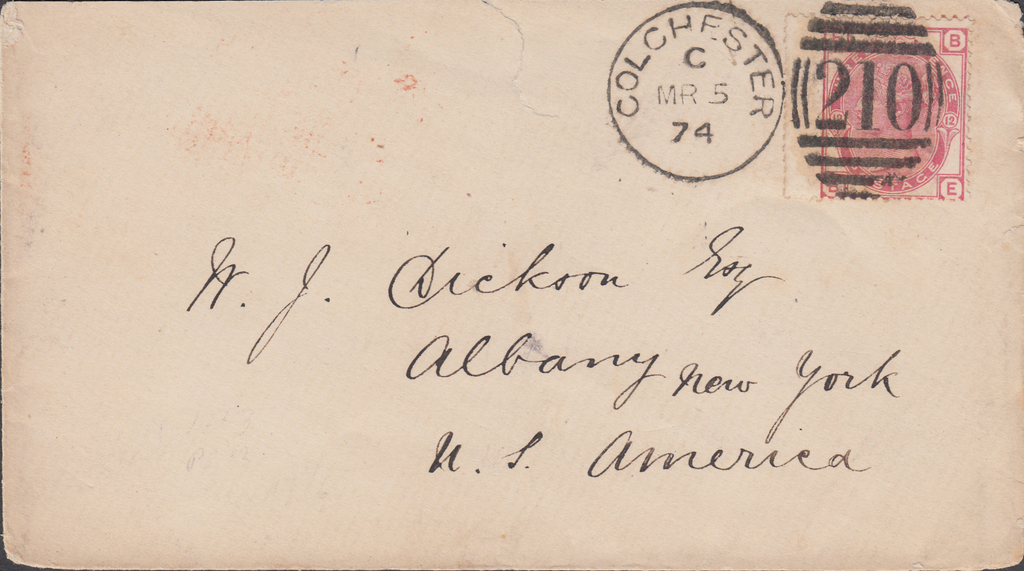 COLCHESTER
C
MR 5
74
210
B
12
POSTAGE
E
W. J. Dickson Esq
Albany New York
U. S. America